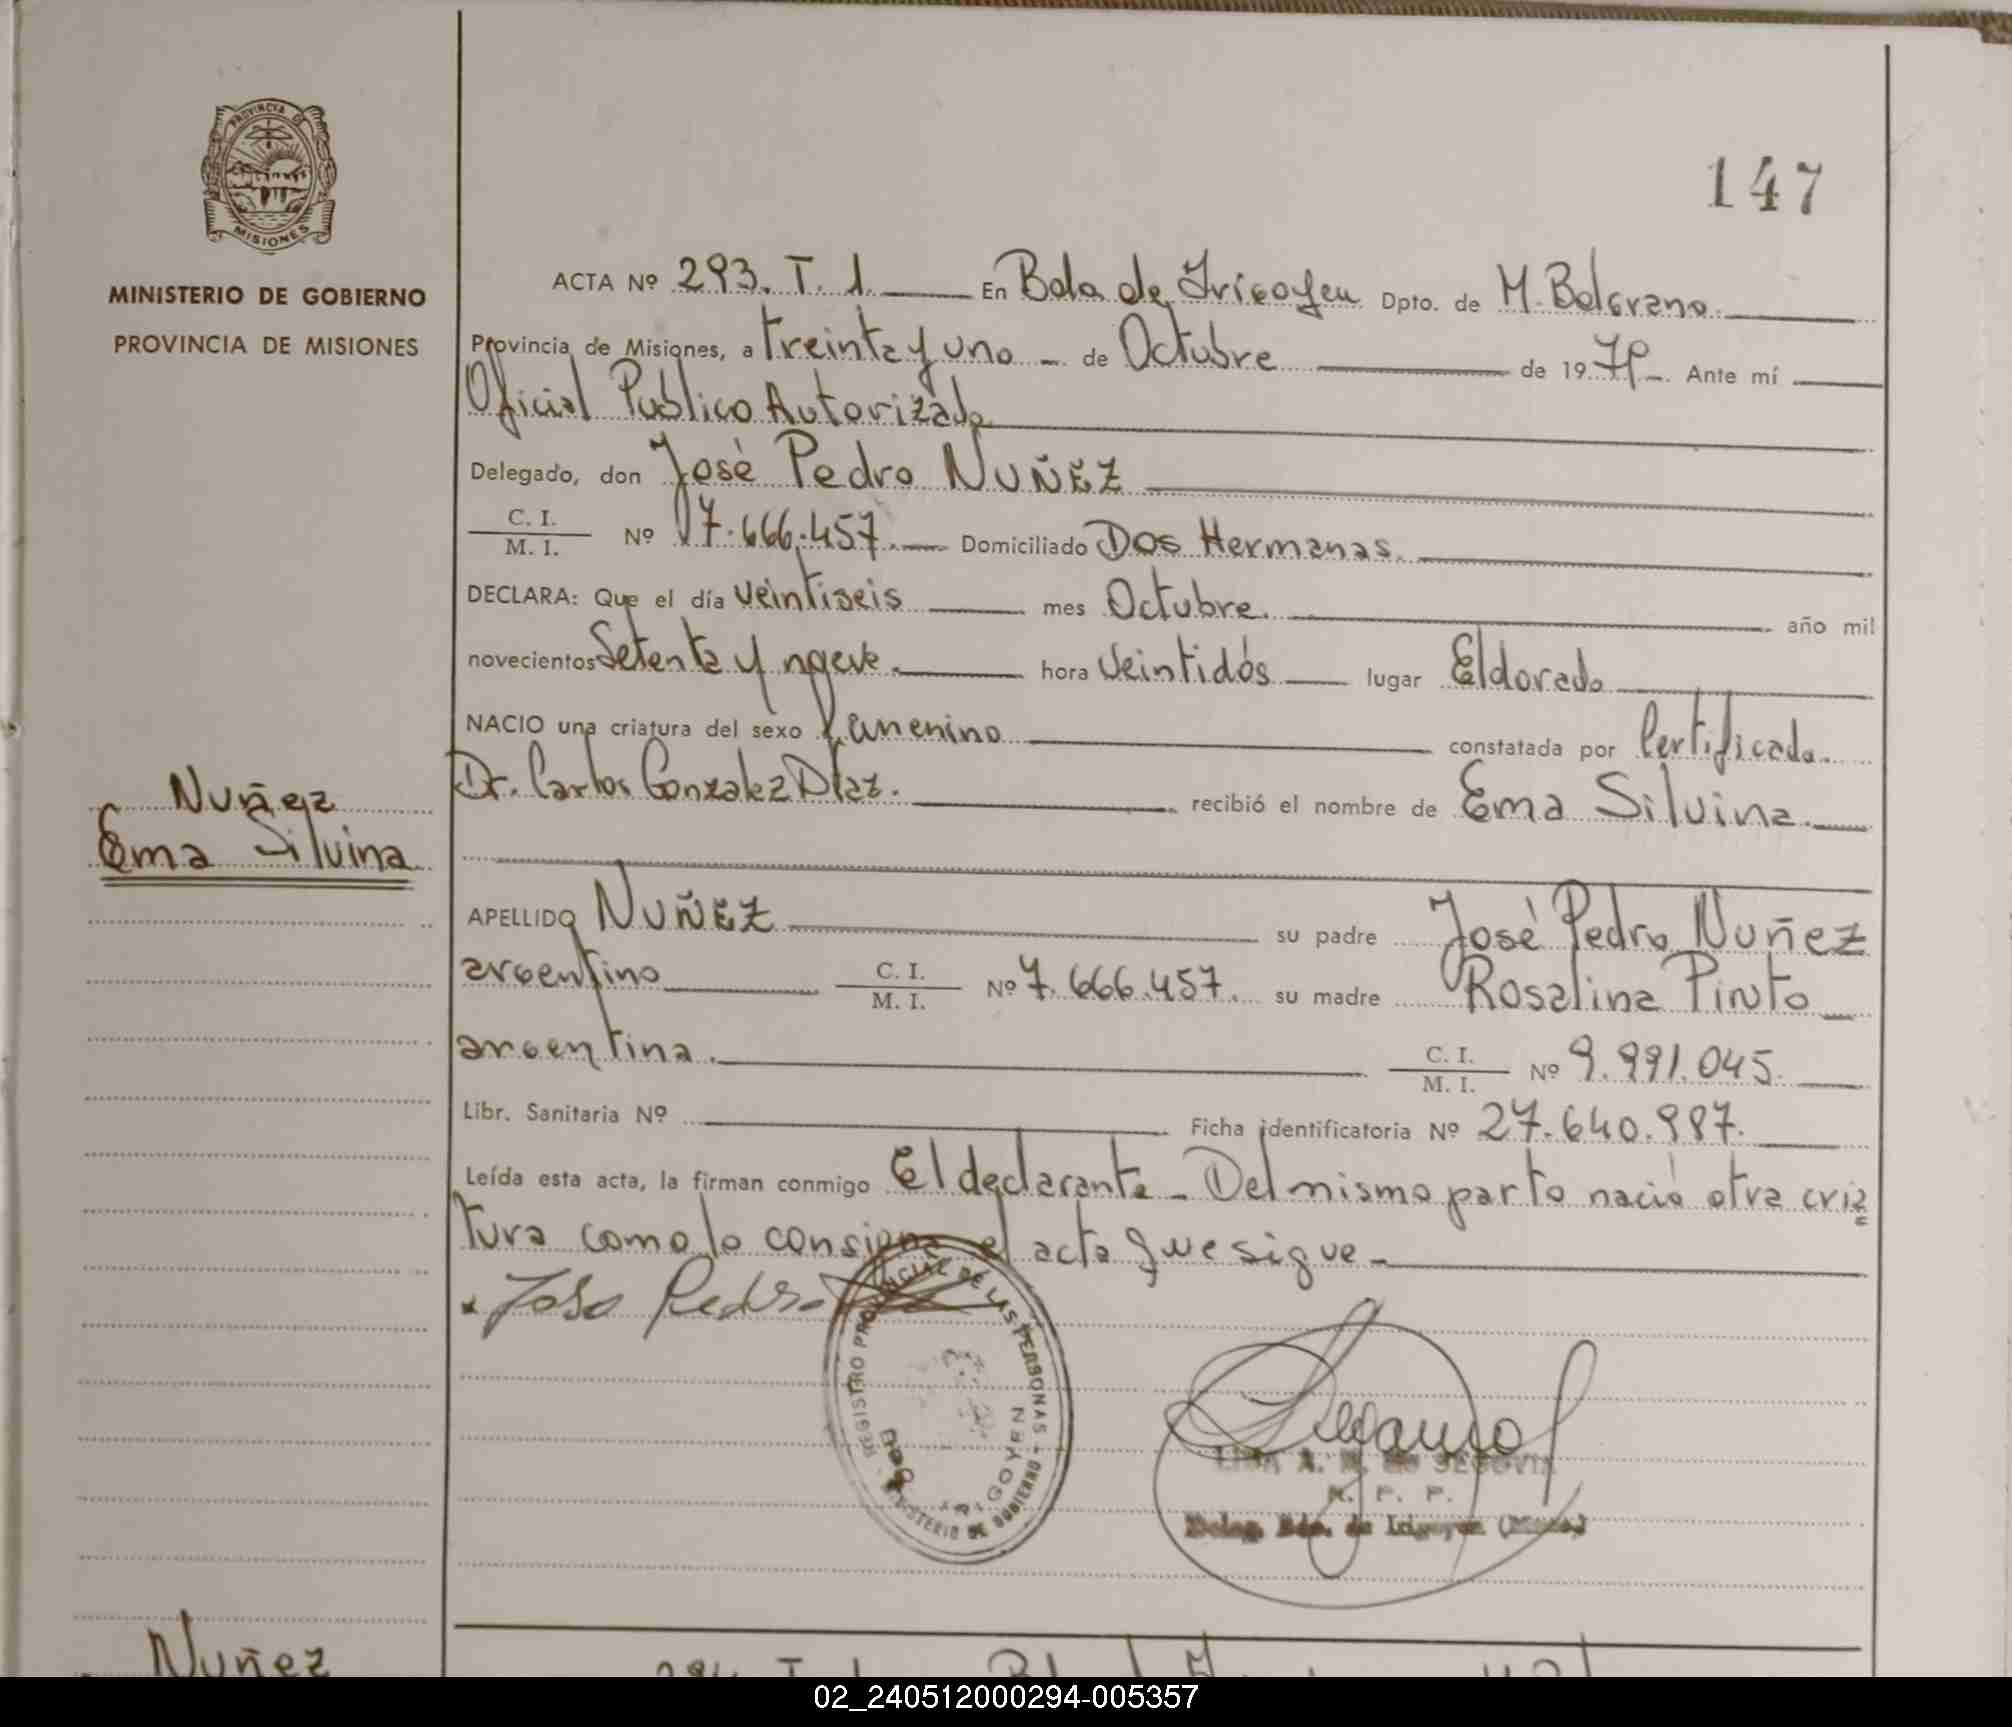 PROVINCIA DE
MISIONES
MINISTERIO DE GOBIERNO
PROVINCIA DE MISIONES
147
ACTA Nº 293. T. 1. En Bdo. de Irigoyen Dpto. de M. Belgrano
Provincia de Misiones, a treinta y uno - de Octubre de 1979 - Ante mí
Oficial Publico Autorizado
Delegado, don José Pedro NUÑEZ
C. I.
M. I. Nº 7.666.457. Domiciliado Dos Hermanas.
DECLARA: Que el día veintiseis mes Octubre. año mil
novecientos Setenta y nueve. hora Veintidós lugar Eldorado
NACIO una criatura del sexo femenino constatada por Certificado.
Dr. Carlos Gonzalez Díaz. recibió el nombre de Ema Silvina.
Nuñez
Ema Silvina
APELLIDO NUÑEZ su padre José Pedro Nuñez
argentino C. I.
M. I. Nº 7.666.457. su madre Rosalina Pinto
argentina. C. I.
M. I. Nº 9.991.045.
Libr. Sanitaria Nº Ficha identificatoria Nº 27.640.987.
Leída esta acta, la firman conmigo El declarante - Del mismo parto nació otra cria
tura como lo consigna el acta que sigue -
Jose Pedro
REGISTRO PROVINCIAL DE LAS PERSONAS - MINISTERIO DE GOBIERNO
BDO. IRIGOYEN
DE SEGOVIA
R. P. P.
Deleg. Bdo. de Irigoyen (Mnes.)
Nuñez
02_240512000294-005357